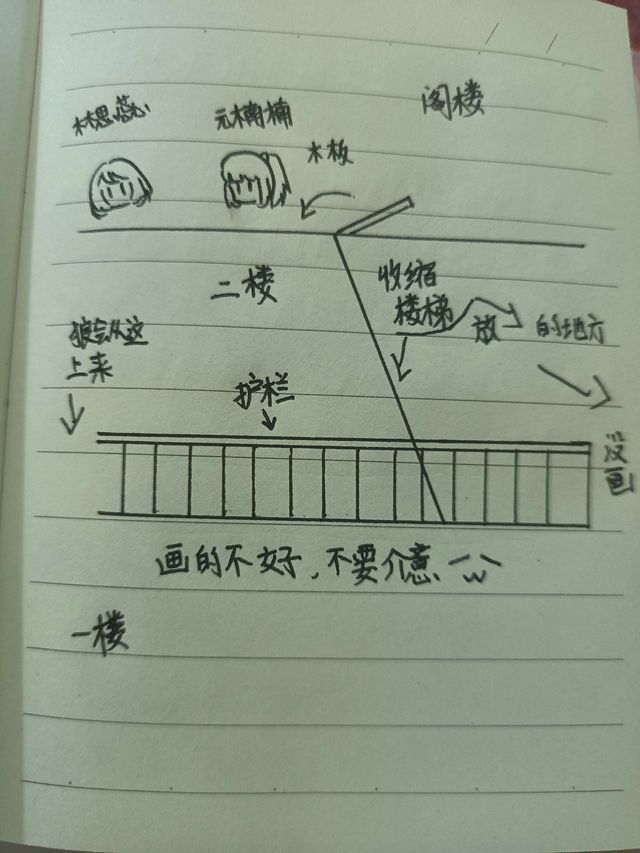 阁楼
林思蕊
元楠楠
木板
二楼
收缩
楼梯
放
的地方
狼会从这
上来
护栏
没画
画的不好，不要介意
一楼